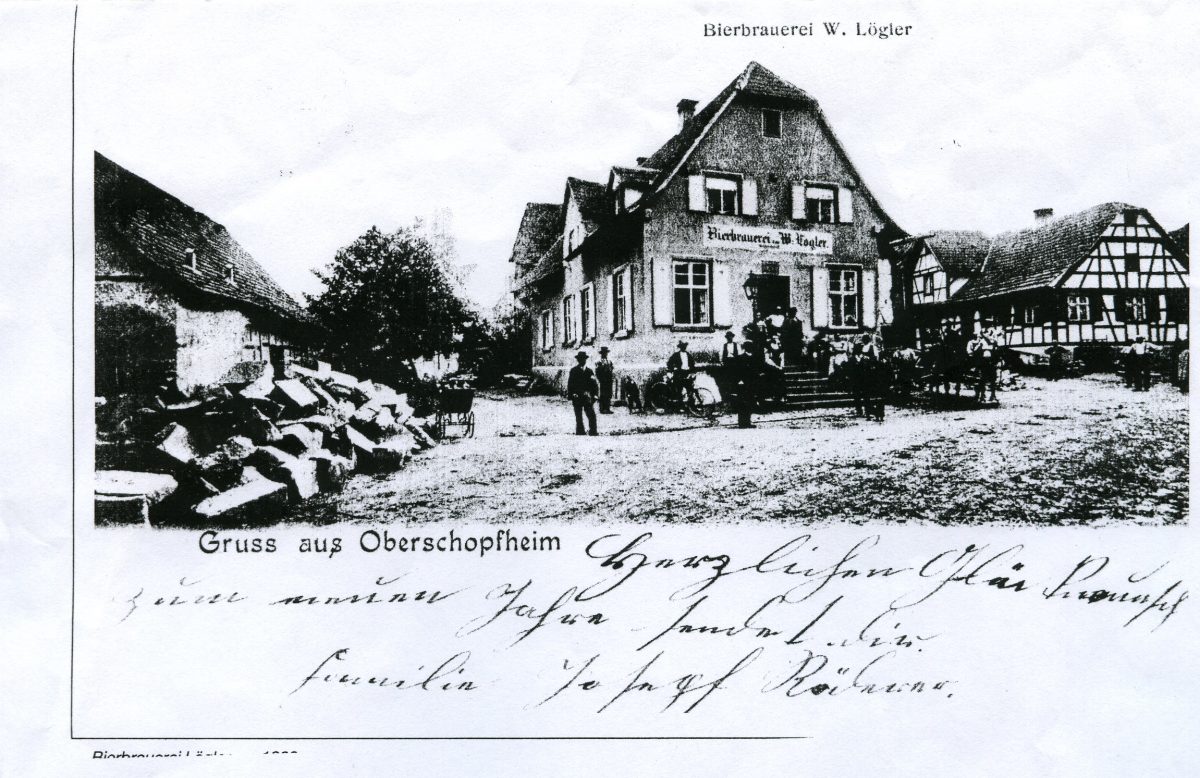 Bierbrauerei W. Lögler
Bierbrauerei von W. Lögler.
Gruss aus Oberschopfheim
Herzlichen Glückwunsch
zum neuen Jahre sendet dir
Familie Josepf Röderer.
Bierbrauerei Lögler